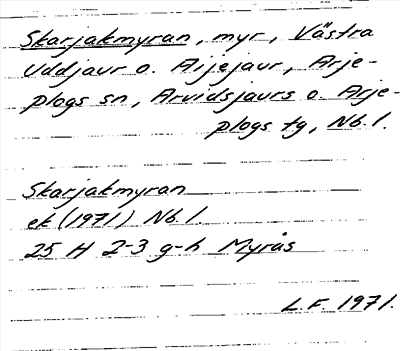 Skarjakmyran, myr, Västra
Uddjaur o. Aijejaur, Arje-
plogs sn, Arvidsjaurs o. Arje-
plogs tg, Nb. l.
Skarjakmyran
ek (1971) Nb. l.
25 H 2-3 g-h Myrås
L.F. 1971.